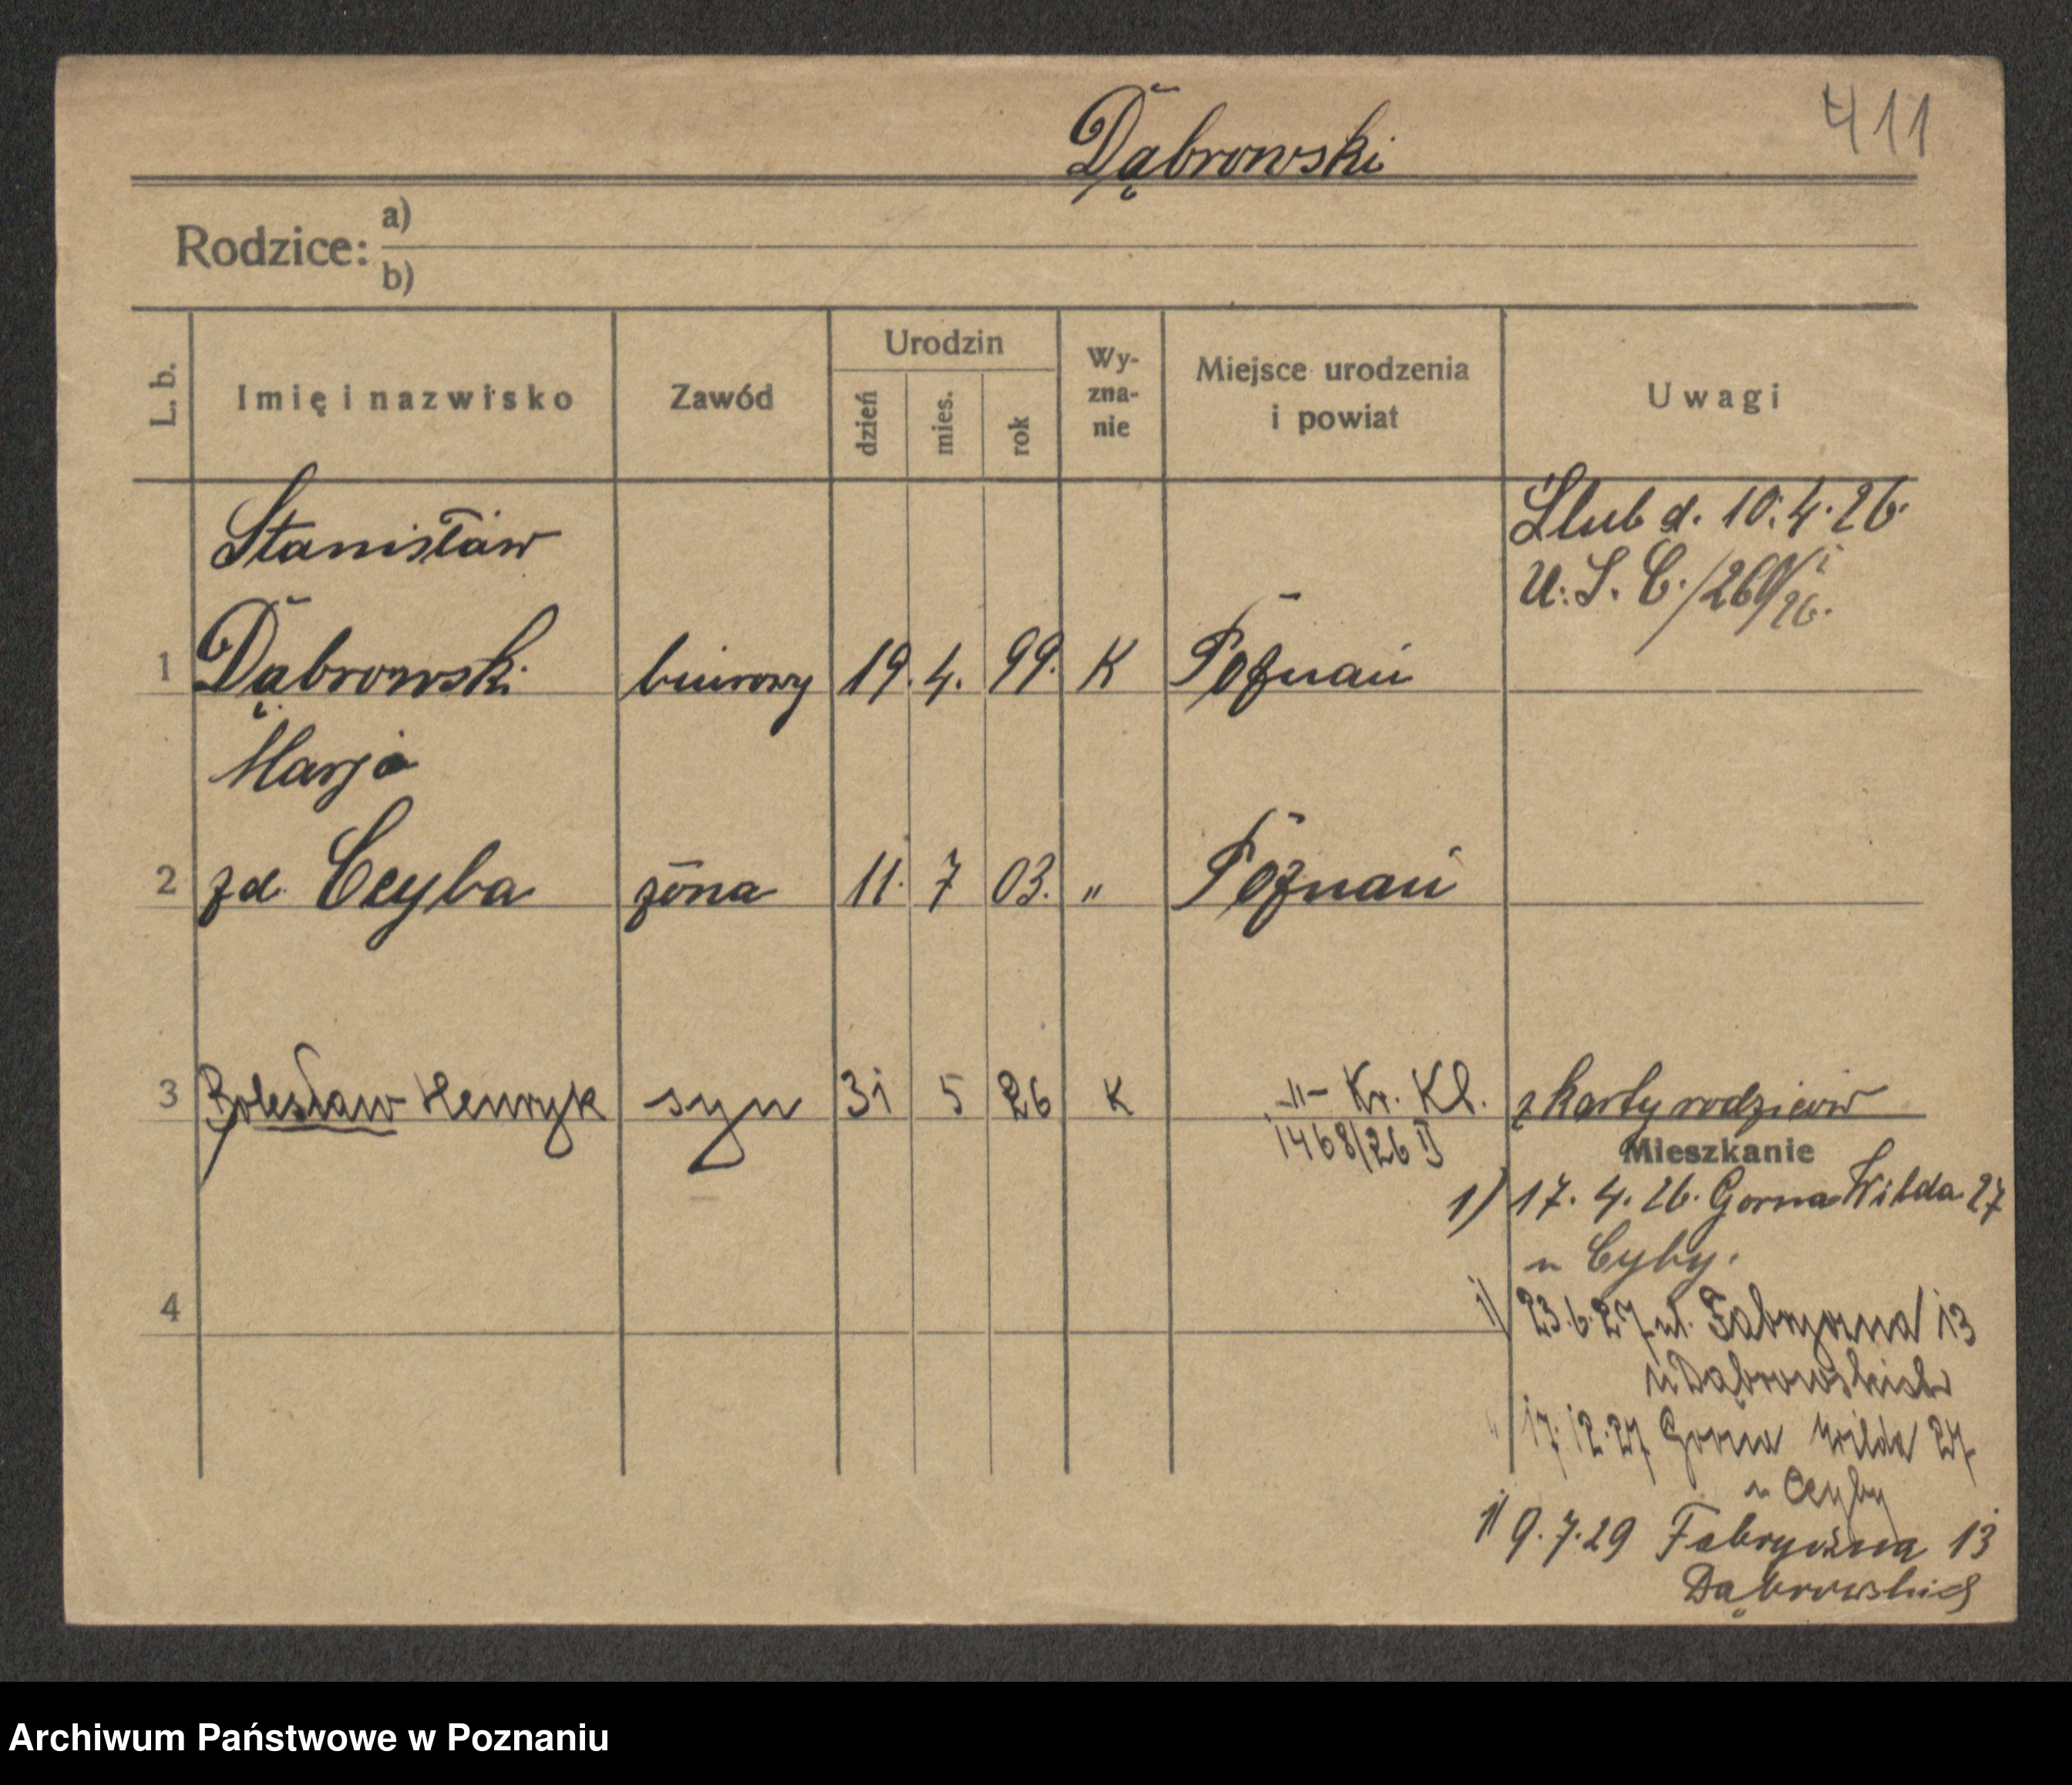 Dąbrowski
411
Rodzice: a)
b)
L. b.
Imię i nazwisko
Zawód
Urodzin
dzień
mies.
rok
Wy-
zna-
nie
Miejsce urodzenia
i powiat
Uwagi
Stanisław
Ślub d. 10.4.26.
U. S. C./260/26.
1 Dąbrowski biurowy 19. 4. 99. K Poznań
Marja
2 zd. Ceyba żona 11. 7 03. " Poznań
3 Bolesław Henryk syn 31 5 26 K -"- Kr. Kl. z karty rodziców
1468/26 II
Mieszkanie
1) 17. 4. 26. Gorna Wilda 27
u Cyby.
4
1) 23.6.27 ul. Fabryczna 13
u Dąbrowskich
17.12.27 Gorna Wilda 27
u Ceyby
1) 9.7.29 Fabryczna 13
Dąbrowskich
Archiwum Państwowe w Poznaniu